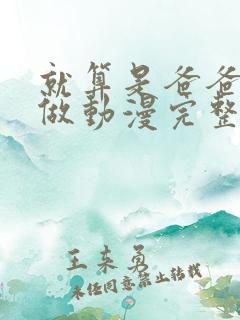 就算是爸爸
做動漫完整
王来勇
未经同意禁止转载